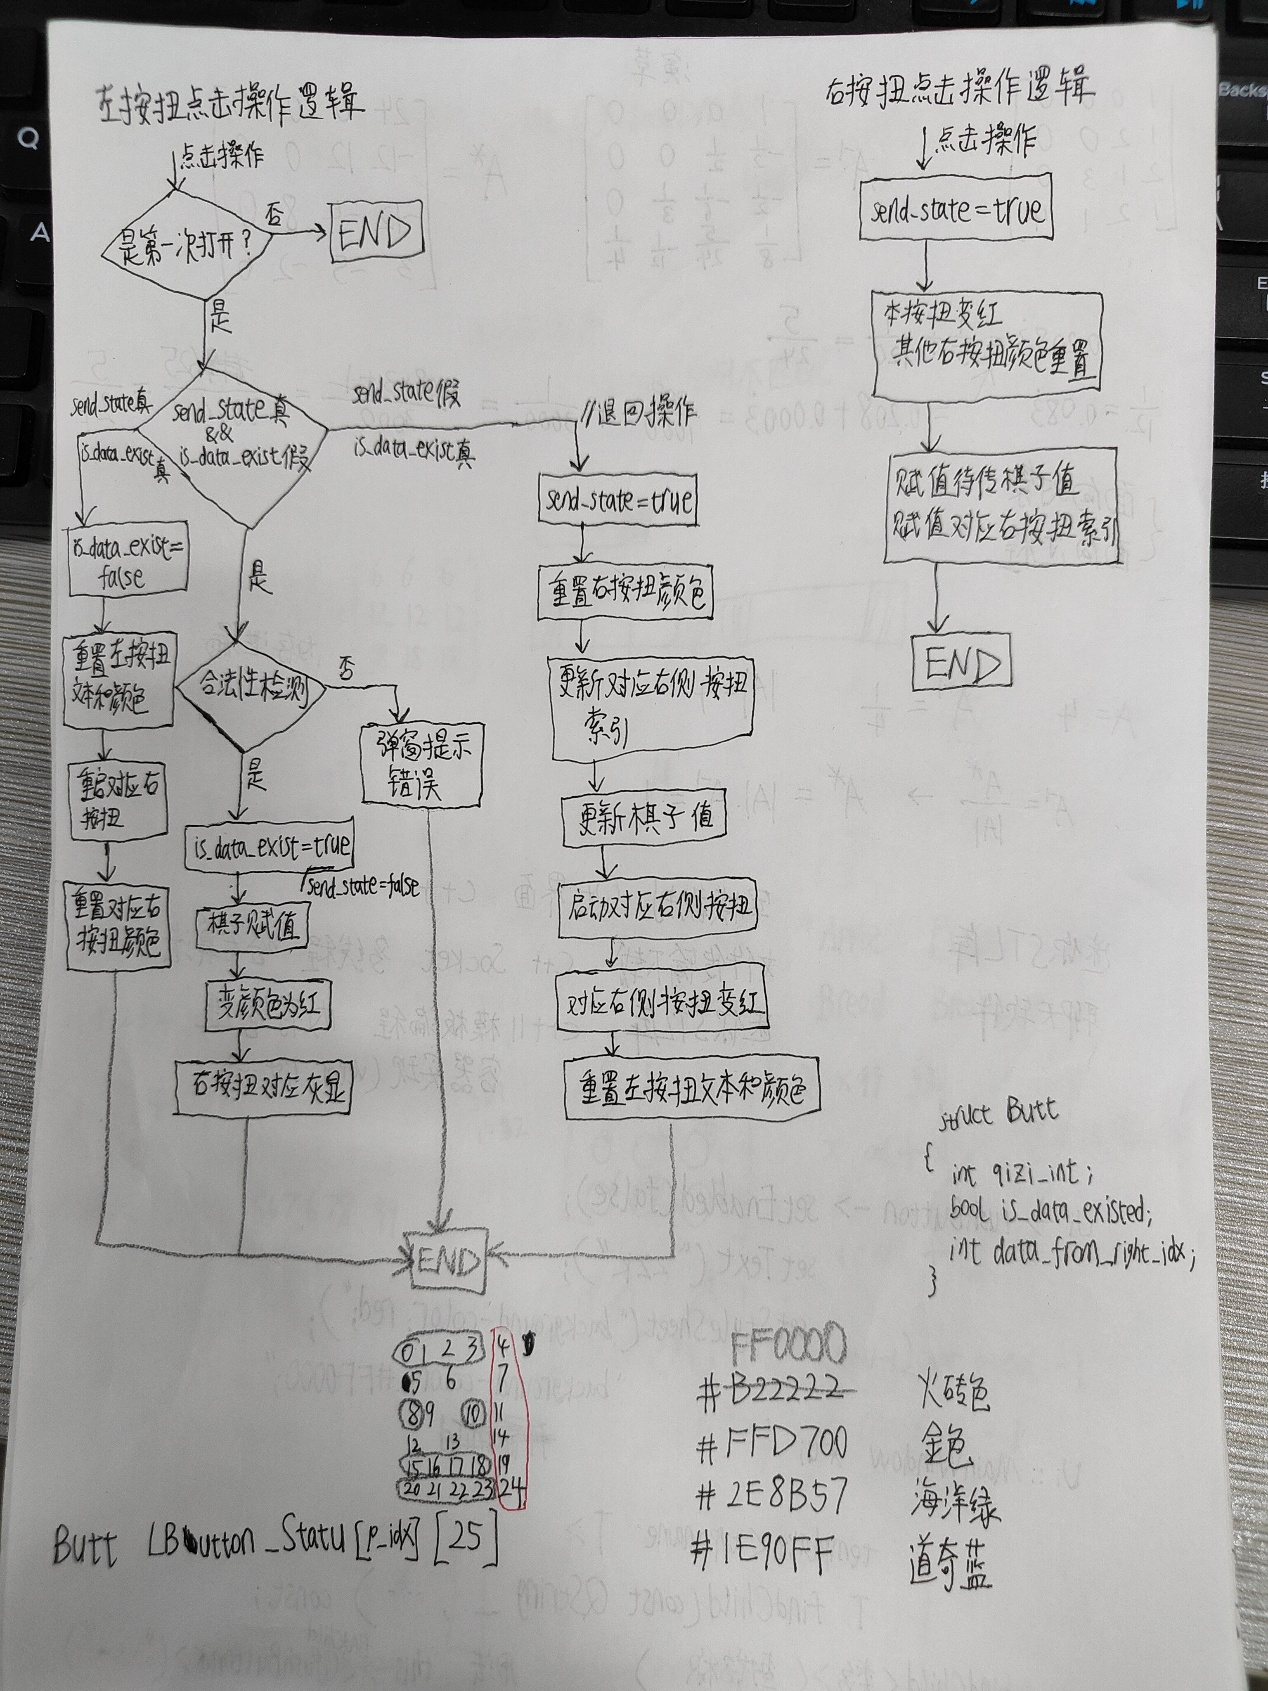 左按扭点击操作逻辑
点击操作
是第一次打开?
否
END
是
send_state真
is_data_exist真
send_state真
&&
is_data_exist假
send_state假
is_data_exist真
//退回操作
is_data_exist=
false
重置左按扭
文本和颜色
重启对应右
按扭
重置对应右
按扭颜色
是
合法性检测
否
弹窗提示
错误
是
is_data_exist=true
send_state=false
棋子赋值
变颜色为红
右按扭对应灰显
send_state=true
重置右按扭颜色
更新对应右侧按扭
索引
更新棋子值
启动对应右侧按扭
对应右侧按扭变红
重置左按扭文本和颜色
END
右按扭点击操作逻辑
点击操作
send_state=true
本按扭变红
其他右按扭颜色重置
赋值待传棋子值
赋值对应右按扭索引
END
struct Butt
{
int qizi_int;
bool is_data_existed;
int data_from_right_idx;
}
0 1 2 3 4
5 6 7
8 9 10 11
12 13 14
15 16 17 18 19
20 21 22 23 24
Butt LButton_Statu[p_idx][25]
FF0000
#B22222 火砖色
#FFD700 金色
#2E8B57 海洋绿
#1E90FF 道奇蓝